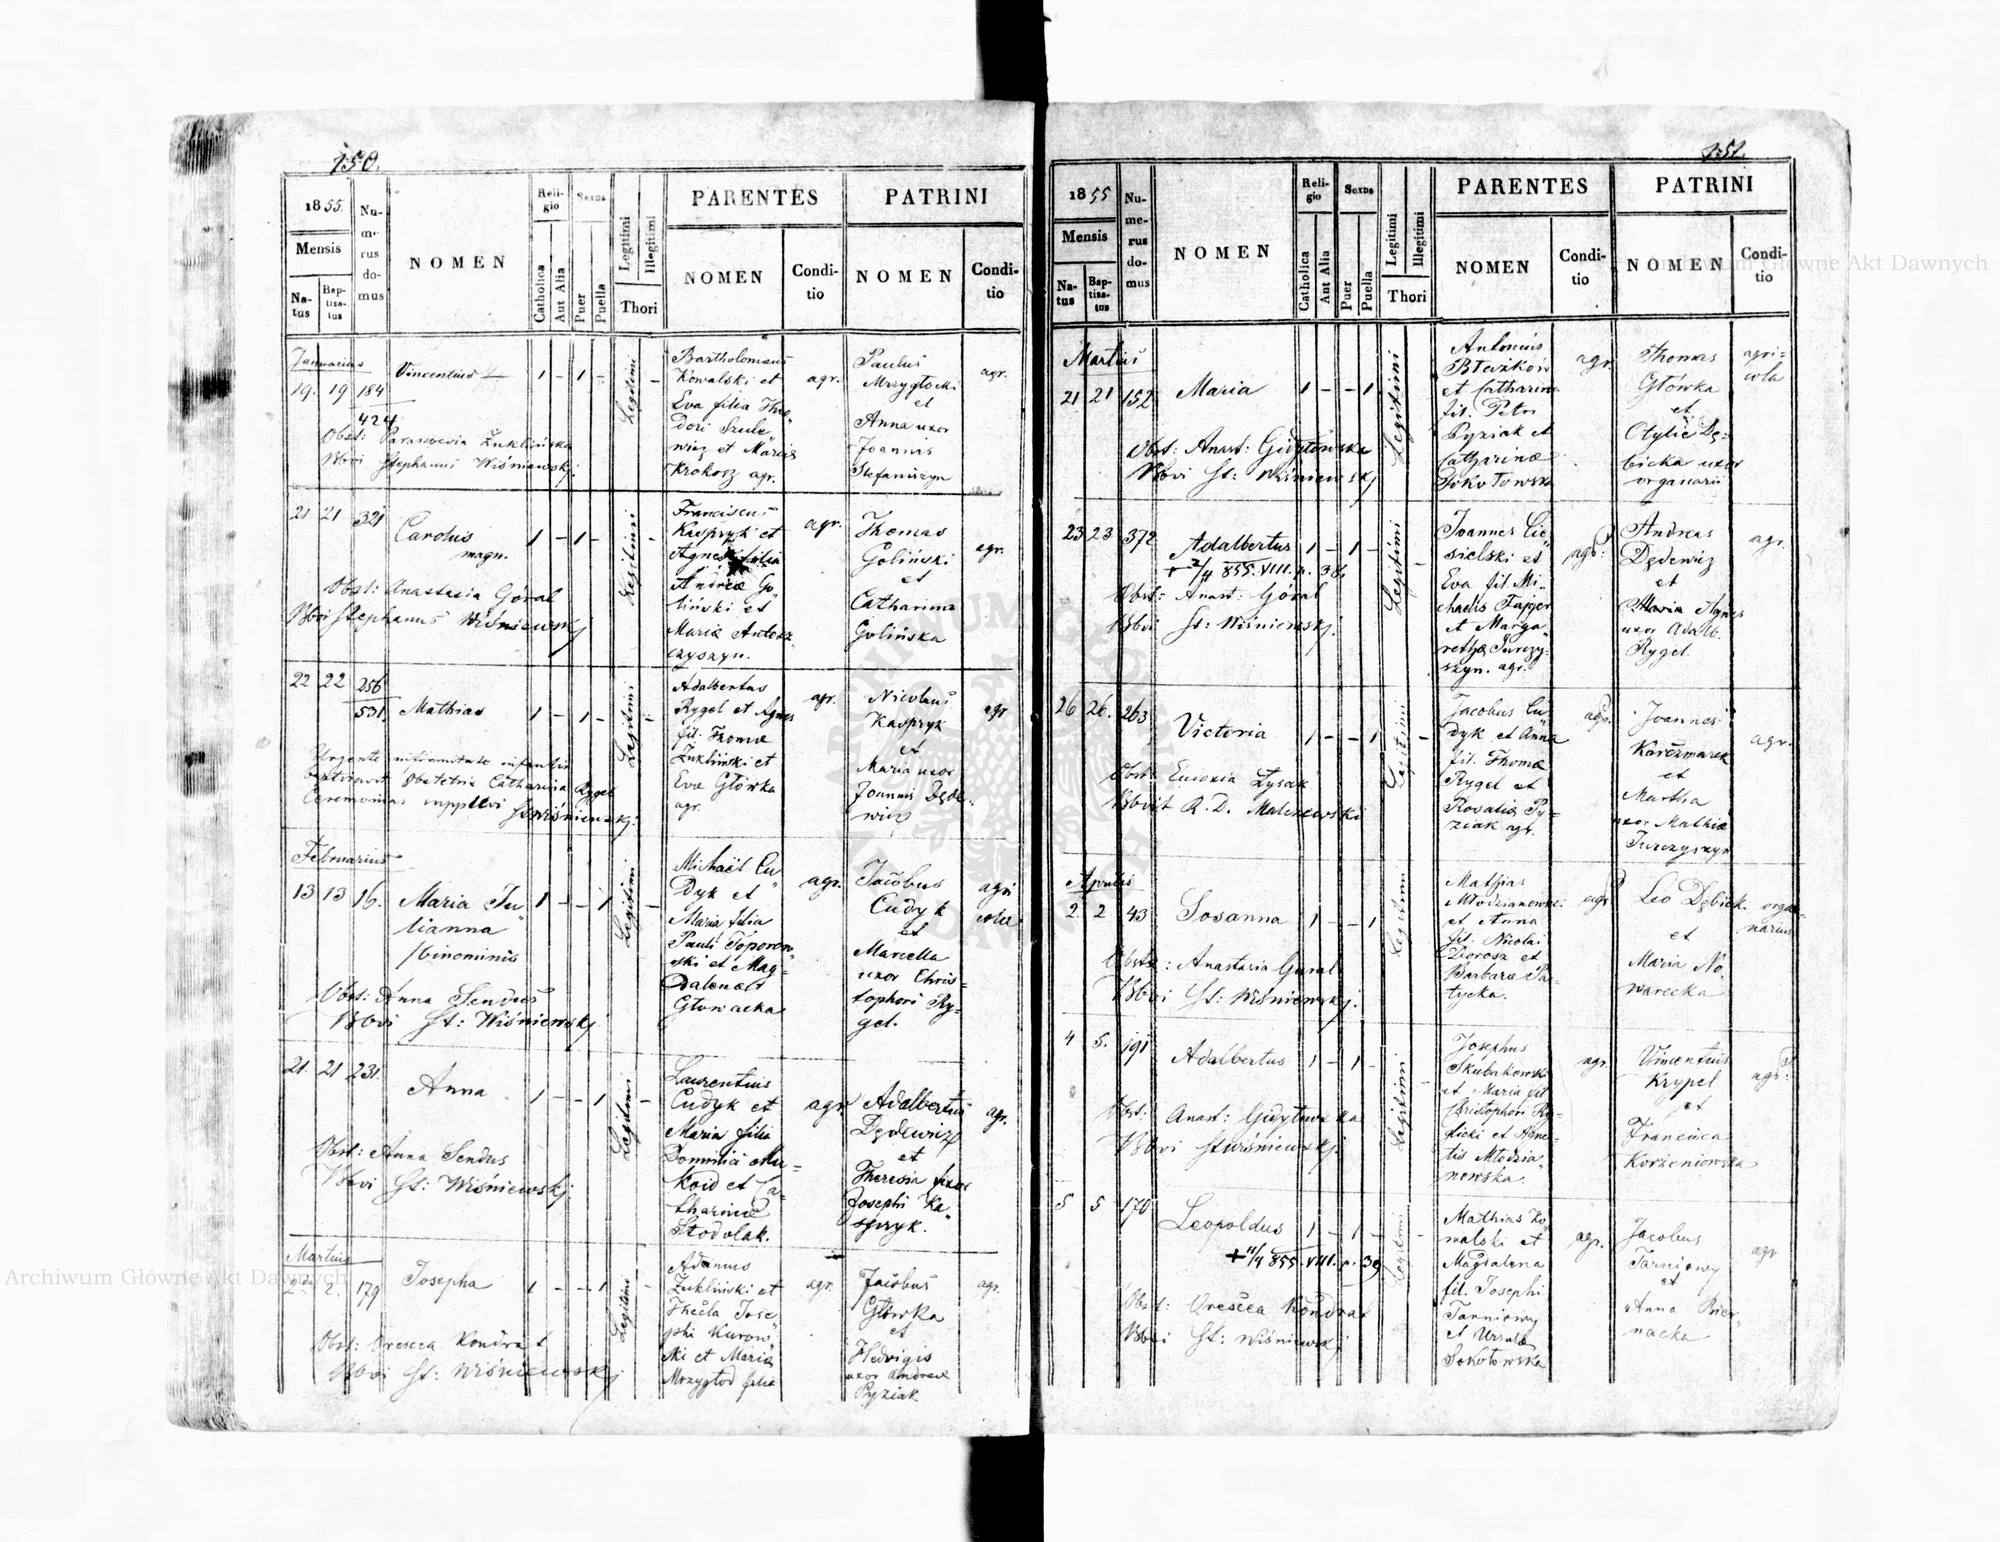 150.
1855.
Mensis
Na-
tus
Bap-
tisa-
tus
Nu-
me-
rus
do-
mus
NOMEN
Reli-
gio
Catholica
Aut Alia
Sexus
Puer
Puella
Legitimi
Illegitimi
Thori
PARENTES
NOMEN
Condi-
tio
PATRINI
NOMEN
Condi-
tio
Januarius
19. 19 184
424
Vincentius
1 - 1 -
Legitimi -
Bartholomeus
Kowalski et
Eva filia Theo
dori Szule
wicz et Maria
Krokosz agr.
agr.
Paulus
Mrzygłocki
et
Anna uxor
Joannis
Stefaniszyn
agr.
Obst: Parascevia Zuklińska
Bbvi Stephanus Wiśniewskj
21 21 321
Carolus
magn.
1 - 1 -
Legitimi -
Franciscus
Kasprzyk et
Agnes filia
Andreæ Go
liński et
Maria Antosz
czyszyn.
agr.
Thomas
Goliński
et
Catharina
Golińska
agr.
Obst: Anastasia Góral
Bbvi Stephanus Wiśniewskj
22 22 256
531
Mathias
1 - 1 -
Legitimi -
Adalbertus
Rygel et Agnes
fil. Thomæ
Zukliński et
Eva Główka
agr.
agr.
Nicolaus
Kasprzyk
et
Maria uxor
Joannis Dęde
wicz
agr
Urgente infirmitate infantis
baptisavit Obstetrix Catharina Rygel
Ceremonias supplevi St Wiśniewskj.
Februarius
13 13 16.
Maria Ju
lianna
binominis
1 - - 1
Legitimi -
Michaël Cu
dyk et
Maria filia
Pauli Toporow
ski et Mag-
dalenæ
Głowacka
agr.
Jacobus
Cudyk
et
Marcella
uxor Chris-
tophori Ry-
gel.
agri
cola
Obst: Anna Sendus
Bbvi St: Wiśniewskj
21. 21 231.
Anna
1 - - 1
Legitimi -
Laurentius
Cudyk et
Maria filia
Stodolak.
agr.
Adalbertus
Dędewicz
et
Theresia uxor
Josephi Ka
sprzyk.
agr.
Obst: Anna Sendus
Bbvi St: Wiśniewskj
Martius
2. 179
Josepha
1 - - 1
Legitimi -
Adamus
Zukliński et
Thecla Jose
phi Kurow
ski et Maria
Mrzygłod filia
agr.
Jacobus
Główka
et
Hedvigis
uxor Andreæ
Pyziak
agr.
Obst: Orescea Kondrat
Bbvi St: Wiśniewskj
151.
1855
Mensis
Na-
tus
Bap-
tisa-
tus
Nu-
me-
rus
do-
mus
NOMEN
Reli-
gio
Catholica
Aut Alia
Sexus
Puer
Puella
Legitimi
Illegitimi
Thori
PARENTES
NOMEN
Condi-
tio
PATRINI
NOMEN
Condi-
tio
Martius
21 21 152
Maria
1 - - 1
Legitimi
Antonius
et Catharina
fil. Petri
Pyziak et
Catharinæ
Sokołowska
agr.
Thomas
Główka
et
Otylie Dę-
bicka uxor
organarii
agri-
cola
Obst: Anast: Gidytowska
Bbvi St: Wiśniewskj
23 23 372
Adalbertus
+ 2/4 855. VIII. p. 38.
1 - 1 -
Legitimi -
Joannes Cie
sielski et
Eva fil. Mi-
chaelis Fajger
et Marga
rethæ Turczy-
szyn. agr.
agr.
Andreas
Dędewicz
et
Maria Agnes
uxor Adalb.
Rygel
agr.
Obst: Anast: Góral
Bbvi St: Wiśniewskj.
26 26. 263
Victoria
1 - - 1
Legitimi -
Jacobus Cu
dyk et Anna
fil. Thomæ
Rygel et
Rosaliæ Py-
ziak agr.
agr.
Joannes
Karczmarek
et
Martha
uxor Mathiæ
Turczyszyn
agr.
Obst: Eudoxia Łysak
Bbvit R. D. Malinowski
Aprilis
2. 2 43
Sosanna
1 - - 1
Legitimi -
Mathias
Młodzianowski
et Anna
fil. Nicolai
Dorosz et
Barbaræ Pa-
tycka.
agr
Leo Dębick.
et
Maria No-
warecka
orga-
narius
Obst: Anastasia Gural
Bbvi St: Wiśniewskj.
4 5. 191
Adalbertus
1 - 1 -
Legitimi -
Josephus
Skubakowski
et Maria fil
Christophori Ry-
glicki et Agne-
tis Młodzia-
nowska.
agr.
Vincentius
Krypel
et
Francisca
Korżeniowska
agr.
Obst: Anast: Gidytowska
Bbvi St Wiśniewskj.
5 5 170
Leopoldus
+ 11/4 855. VIII. p. 39
1 - 1 -
Legitimi -
Mathias Ko
walski et
Magdalena
fil. Josephi
Tarniowy
et Ursula
Sokołowska
agr.
Jacobus
Tarniowy
et
Anna Bier-
nacka
agr
Obst: Orescea Kondrat
Bbvi St: Wiśniewskj
Archiwum Główne Akt Dawnych
Archiwum Główne Akt Dawnych